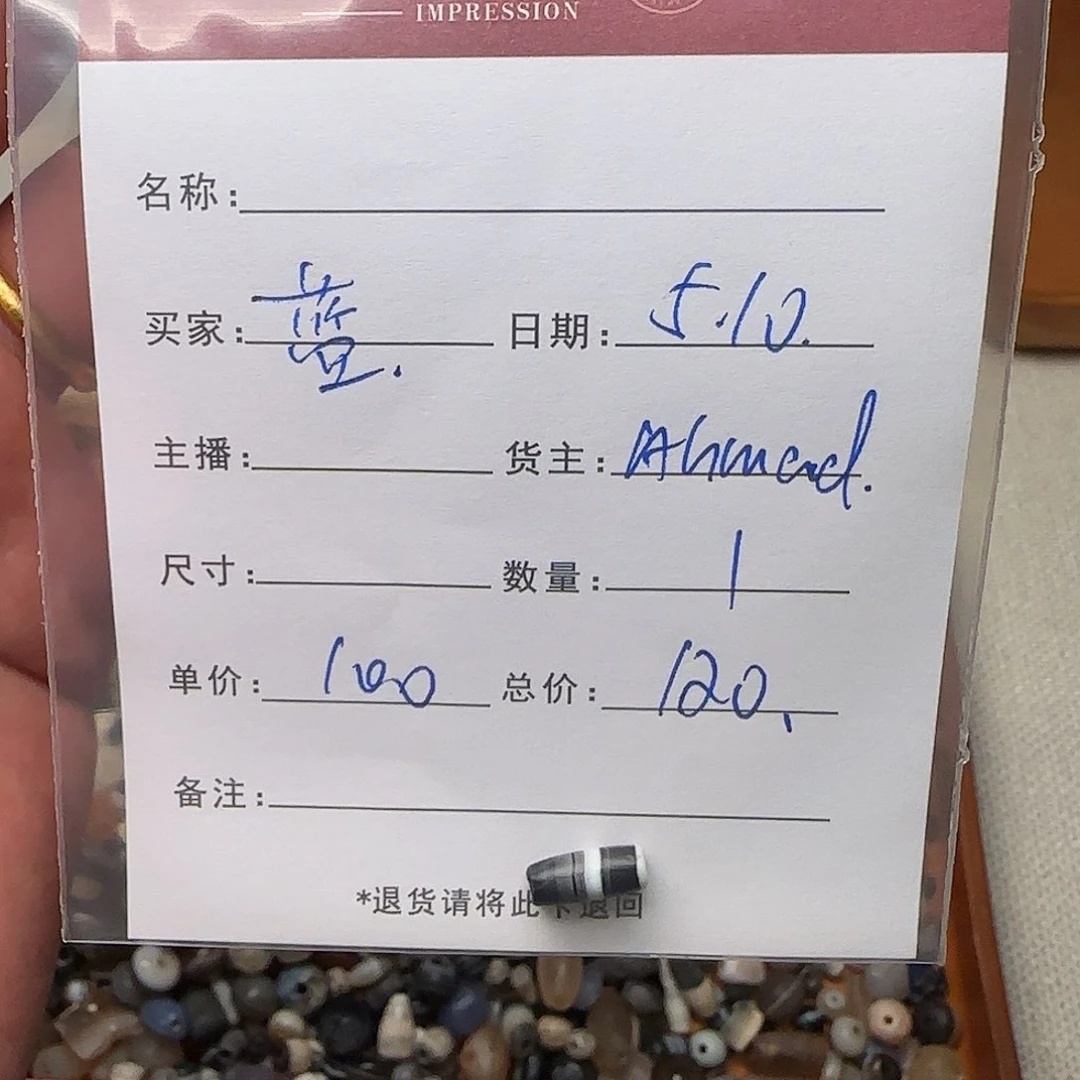 IMPRESSION
名称:
买家: 蓝. 日期: 5.10.
主播: 货主: Ahmad.
尺寸: 数量: 1
单价: 100 总价: 120.
备注:
*退货请将此卡退回